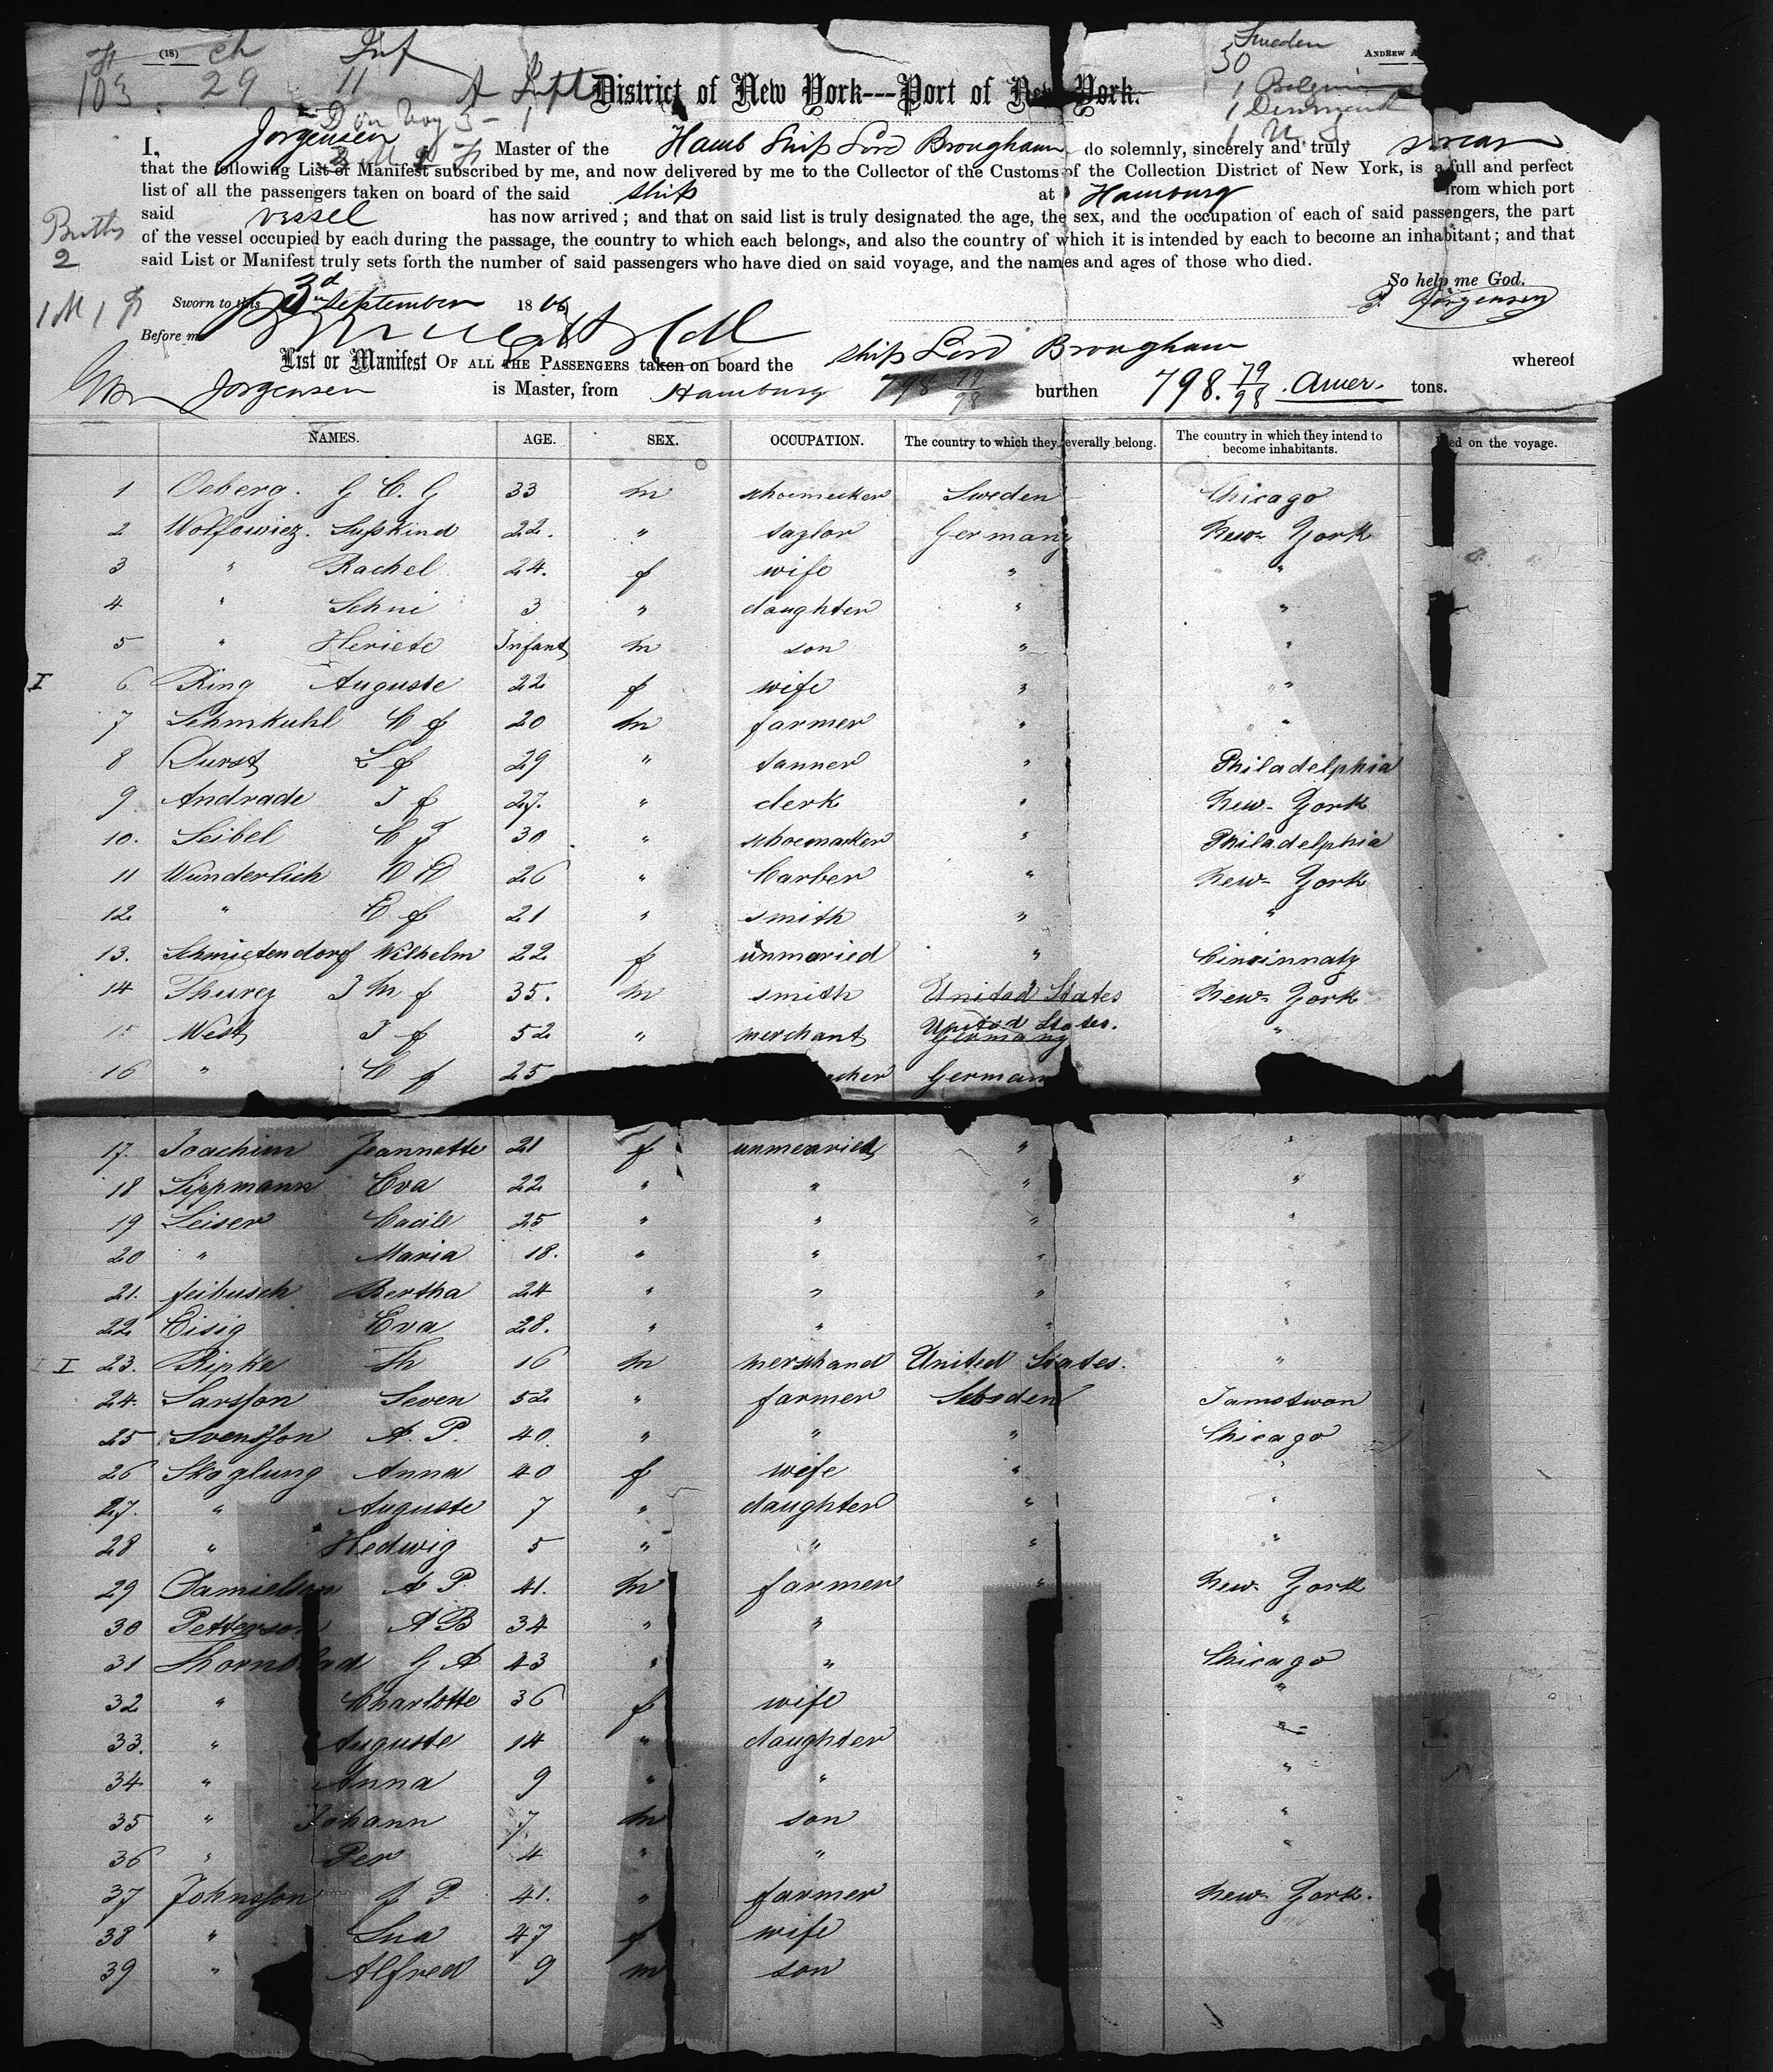 103 (18) 29 ch 11 Inf
Sweden
30
1 Belgium
1 Denmark
1 U S
ANDREW A
District of New York---Port of New York.
D on Voy 3 - 1
I, Jorgensen Master of the Hamb Ship Lord Brougham do solemnly, sincerely and truly swear
that the following List or Manifest subscribed by me, and now delivered by me to the Collector of the Customs of the Collection District of New York, is a full and perfect
list of all the passengers taken on board of the said ship at Hamburg from which port
said vessel has now arrived; and that on said list is truly designated the age, the sex, and the occupation of each of said passengers, the part
of the vessel occupied by each during the passage, the country to which each belongs, and also the country of which it is intended by each to become an inhabitant; and that
said List or Manifest truly sets forth the number of said passengers who have died on said voyage, and the names and ages of those who died.
Births
2
1 M 1 F
So help me God.
Sworn to this 3d September 1866 Jorgensen
Before m
List or Manifest OF ALL THE PASSENGERS taken on board the ship Lord Brougham whereof
Jorgensen is Master, from Hamburg 798 79/98 burthen 798. 79/98 Amer. tons.
NAMES. AGE. SEX. OCCUPATION. The country to which they severally belong. The country in which they intend to become inhabitants. ed on the voyage.
1 Oeberg. G C. G 33 m shoemecker Sweden Chicago
2 Wolfowicz. Susskind 22. " taylor Germany New-York
3 " Rachel 24. f wife " "
4 " Schni 3 " daughter " "
5 " Heriete Infant m son " "
I 6 Ring Auguste 22 f wife " "
7 Sehmkuhl C f 20 m farmer " "
8 Durst L f 29 " tanner " Philadelphia
9 Andrade J f 27. " clerk " New-York
10. Seibel C J 30 " shoemarker " Philadelphia
11 Wunderlich 26 " barber " New-York
12 " E f 21 " smith " "
13. Schmietendorf Wilhelm 22 f unmaried " Cincinnaty
14 Thurez J M f 35. m smith United States New-York
15 West J f 52 " merchant United States. Germany "
16 " C f 25 cher German
17. Joachim Jeannette 21 f unmearied " "
18 Lippmann Eva 22 " " " "
19 Leiser Cacile 25 " " " "
20 " Maria 18. " " " "
21. feibusch Bertha 24 " " " "
22 Eisig Eva 28. " " " "
I 23. Ripke Th 16 m mershand United States. "
24. Larsson Seven 52 " farmer Sweden Jamestwon
25 Svensson A. P. 40. " " " Chicago
26 Skoglung Anna 40 f wife " "
27. " Auguste 7 " daughter " "
28 " Hedwig 5 " " " "
29 Danielson A P. 41. m farmer " New-York
30 Petterson A B 34 " " "
31 Thornblad G A 43 " " Chicago
32 " Charlotte 36 f wife "
33. " Auguste 14 " daughter "
34 " Anna 9 " " "
35 " Johann 7. m son "
36 " Per 4 " " "
37 Johnsson J P. 41. " farmer New-York.
38 " Lna 47 f wife
39 " Alfred 9 m son